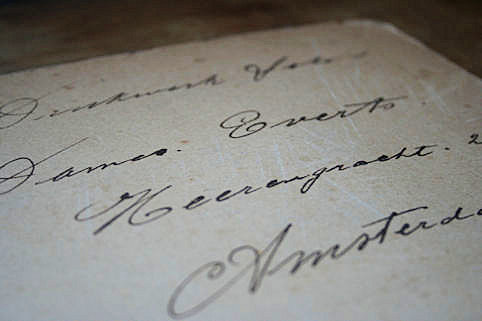 Drukwerk
Dames. Everts.
Heerengracht. 2
Amsterda